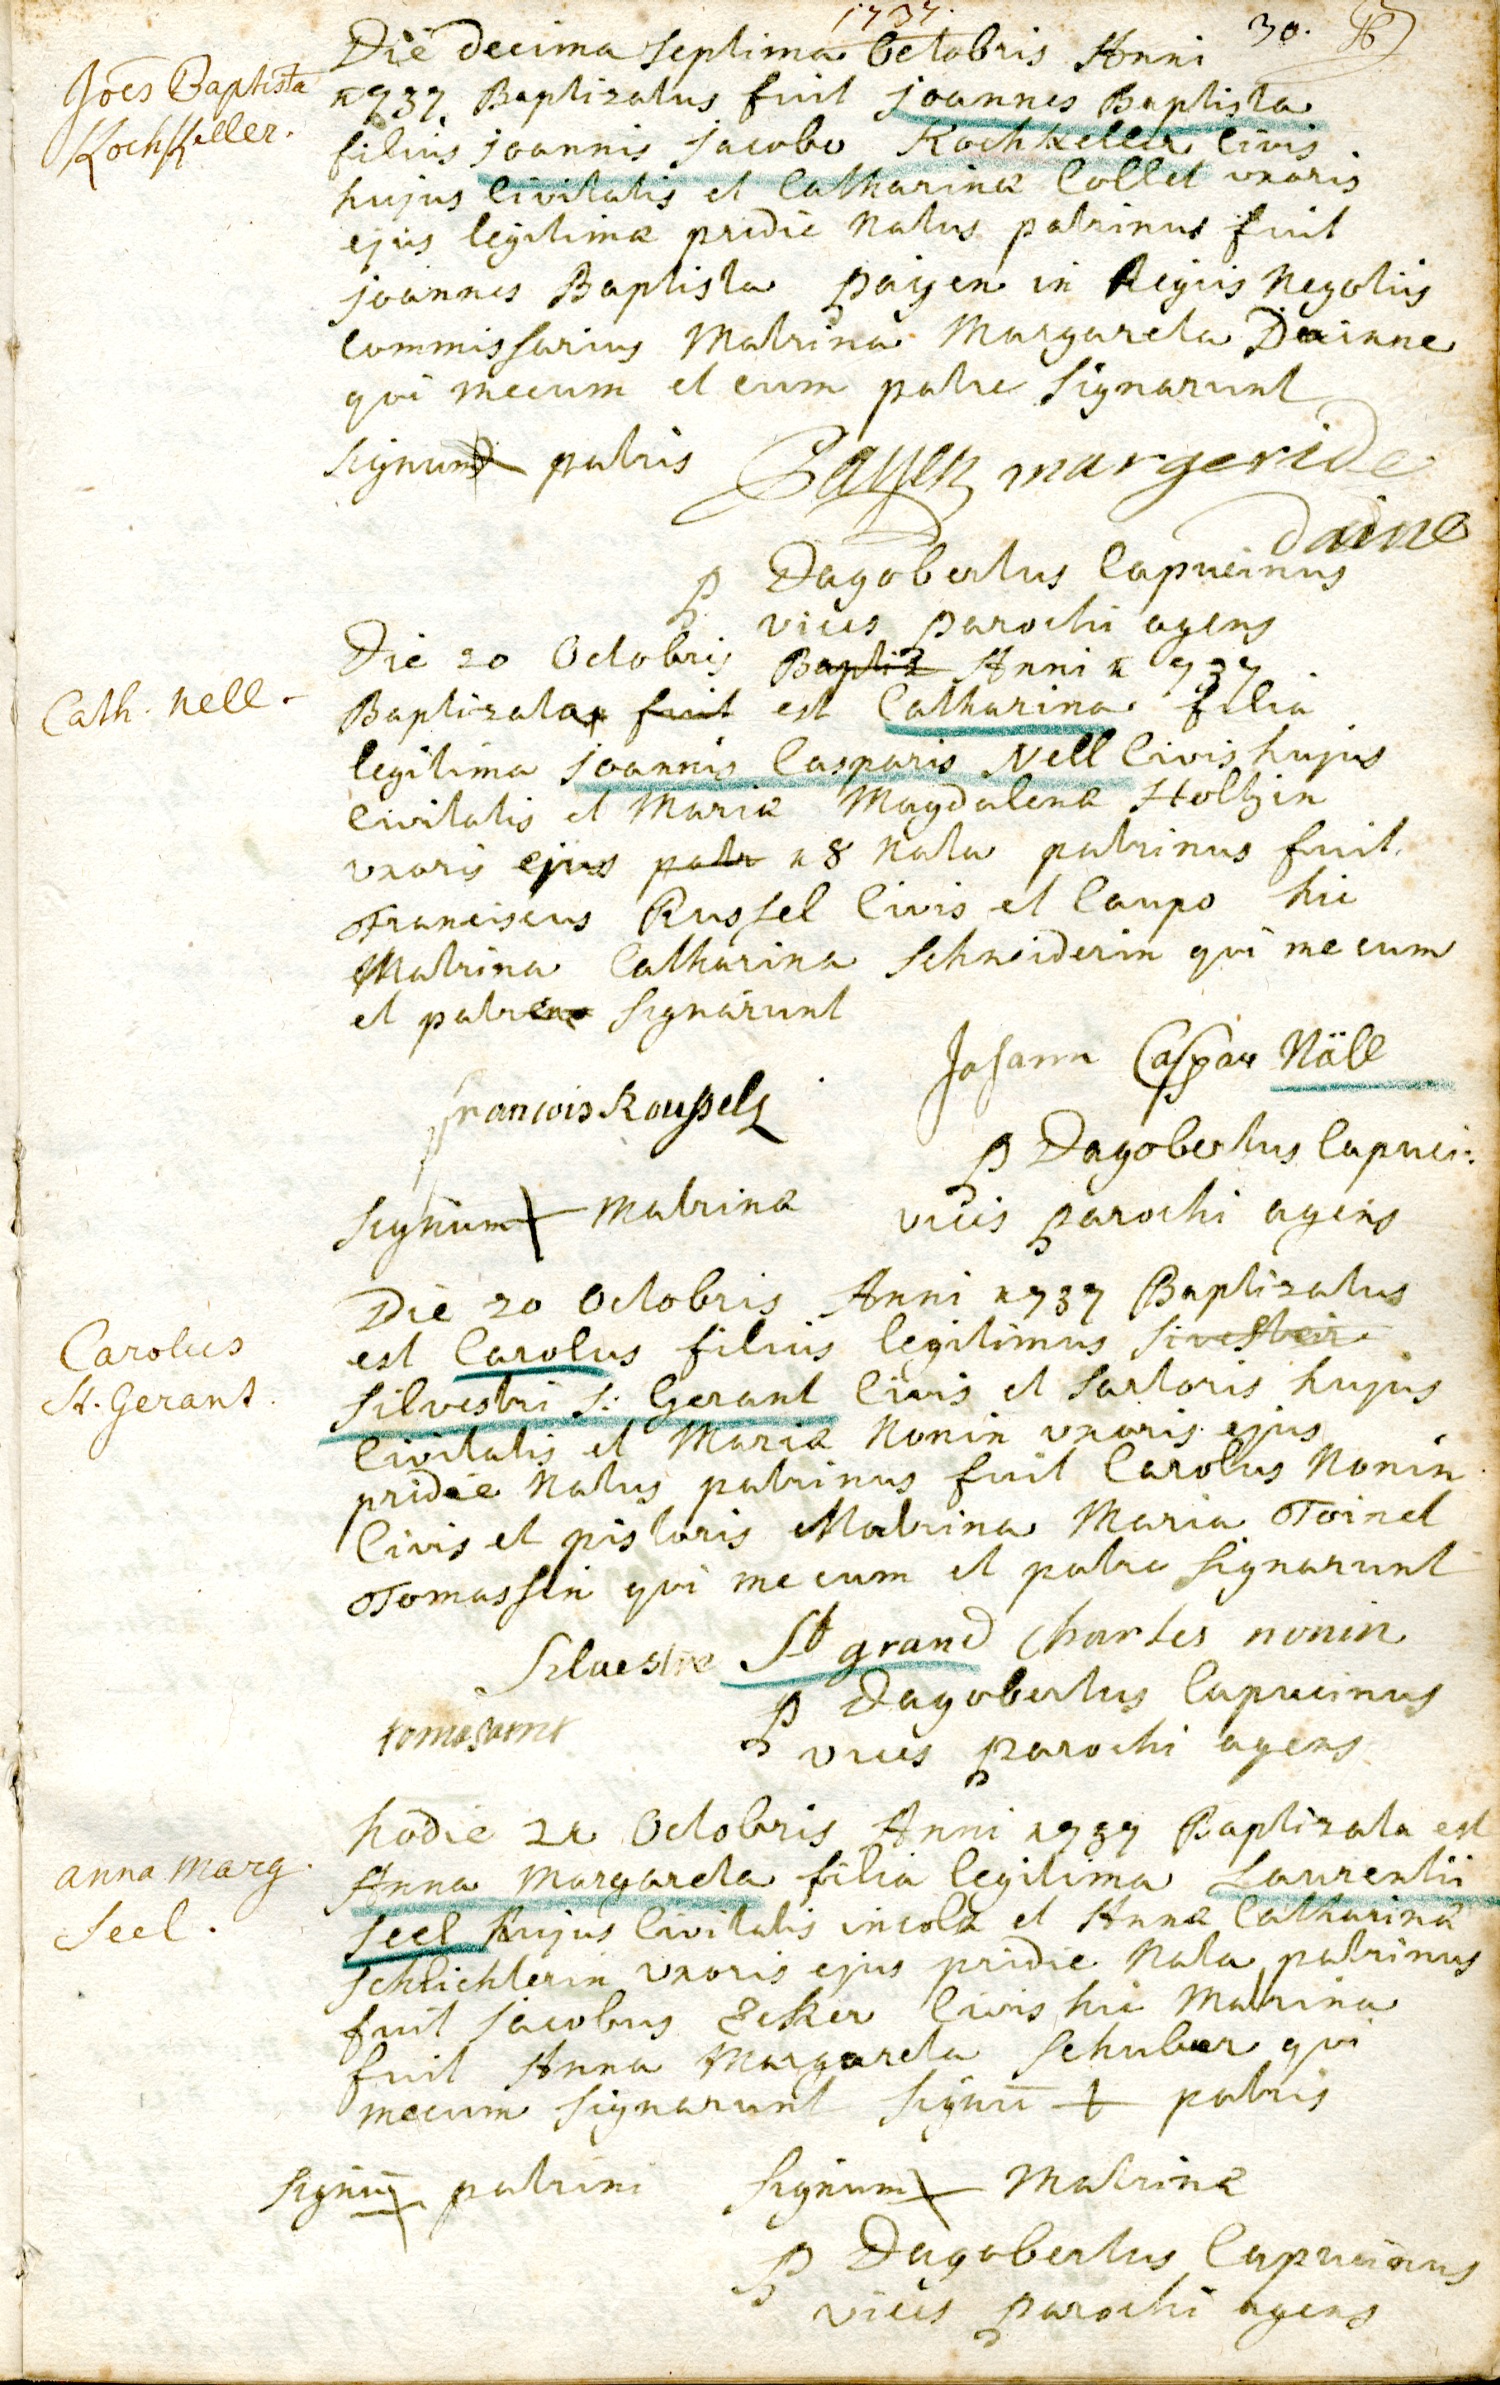 1737.
30.
Die decima septima Octobris Anni
Joẽs Baptista
KochKeller.
1737. Baptizatus fuit joannes Baptista
filius joannis jacobo Kochkeller Civis
hujus Civitatis et Catharinæ Collet uxoris
ejus legitimæ pridie natus patrinus fuit
joannes Baptista payen in Regiis Negotiis
Commissarius Matrina Margareta Dainne
qui mecum et cum patre signarunt
signum patris Payen margeride
daine
P Dagobertus Capucinus
vices parochi agens
Die 20 Octobris Baptiz Anni 1737
Cath. Nell.
Baptizata fuit est Catharina filia
legitima joannis Casparis Nell Civis hujus
Civitatis et Mariæ Magdalenæ Holtzin
uxoris ejus patr 18 nata patrinus fuit
Franciscus Russel Civis et Caupo hic
Matrina Catharina Schneiderin qui mecum
et patre signarunt
Johann Caspar Näll
francois Roussels
P Dagobertus Capuci:
signum Matrinæ vices parochi agens
Die 20 Octobris Anni 1737 Baptizatus
Carolus
St. Gerant.
est Carolus filius legitimus
silvestri S: Gerant Civis et sartoris hujus
Civitatis et Mariæ Nonin uxoris ejus
pridie natus patrinus fuit Carolus Nonin
Civis et pistoris Matrina Maria Toinet
Tomassin qui mecum et patre signarunt
Silvestre St grand charles nonin
P Dagobertus Capucinus
vices parochi agens
hodie 21 Octobris Anni 1737 Baptizata est
anna Marg.
Seel.
Anna Margareta filia legitima Laurentii
seel hujus Civitatis incolæ et Annæ Catharinæ
schlichterin uxoris ejus pridie nata patrinus
fuit jacobus Ecker Civis hic Matrina
fuit Anna Margareta Schuber qui
mecum signarunt signū patris
signū patrini signum Matrinæ
P Dagobertus Capucinus
vices parochi agens